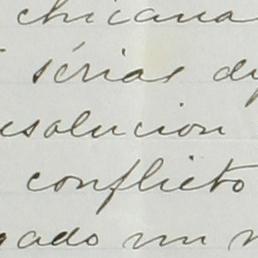 chicana
sérias di
esolucion
conflicto
gado un